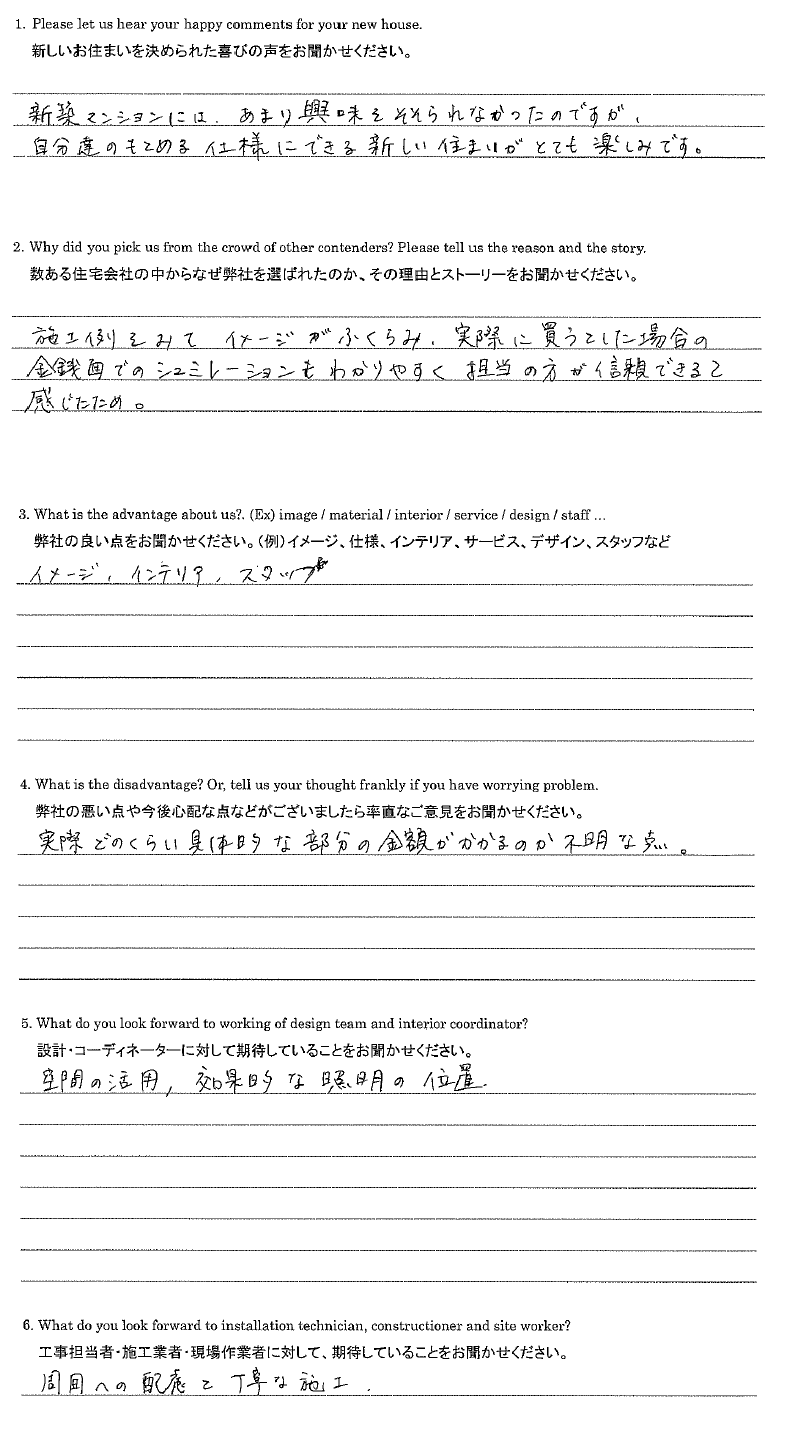 1. Please let us hear your happy comments for your new house.
新しいお住まいを決められた喜びの声をお聞かせください。
新築マンションには、あまり興味をそそられなかったのですが、
自分達のもとめる仕様にできる新しい住まいがとても楽しみです。
2. Why did you pick us from the crowd of other contenders? Please tell us the reason and the story.
数ある住宅会社の中からなぜ弊社を選ばれたのか、その理由とストーリーをお聞かせください。
施工例をみてイメージがふくらみ、実際に買うとした場合の
金銭面でのシュミレーションもわかりやすく担当の方が信頼できると
感じたため。
3. What is the advantage about us?. (Ex) image / material / interior / service / design / staff ...
弊社の良い点をお聞かせください。（例）イメージ、仕様、インテリア、サービス、デザイン、スタッフなど
イメージ、インテリア、スタッフ
4. What is the disadvantage? Or, tell us your thought frankly if you have worrying problem.
弊社の悪い点や今後心配な点などがございましたら率直なご意見をお聞かせください。
実際どのくらい具体的な部分の金額がかかるのか不明な点。
5. What do you look forward to working of design team and interior coordinator?
設計・コーディネーターに対して期待していることをお聞かせください。
空間の活用、効果的な照明の位置.
6. What do you look forward to installation technician, constructioner and site worker?
工事担当者・施工業者・現場作業者に対して、期待していることをお聞かせください。
周囲への配慮と丁寧な施工.